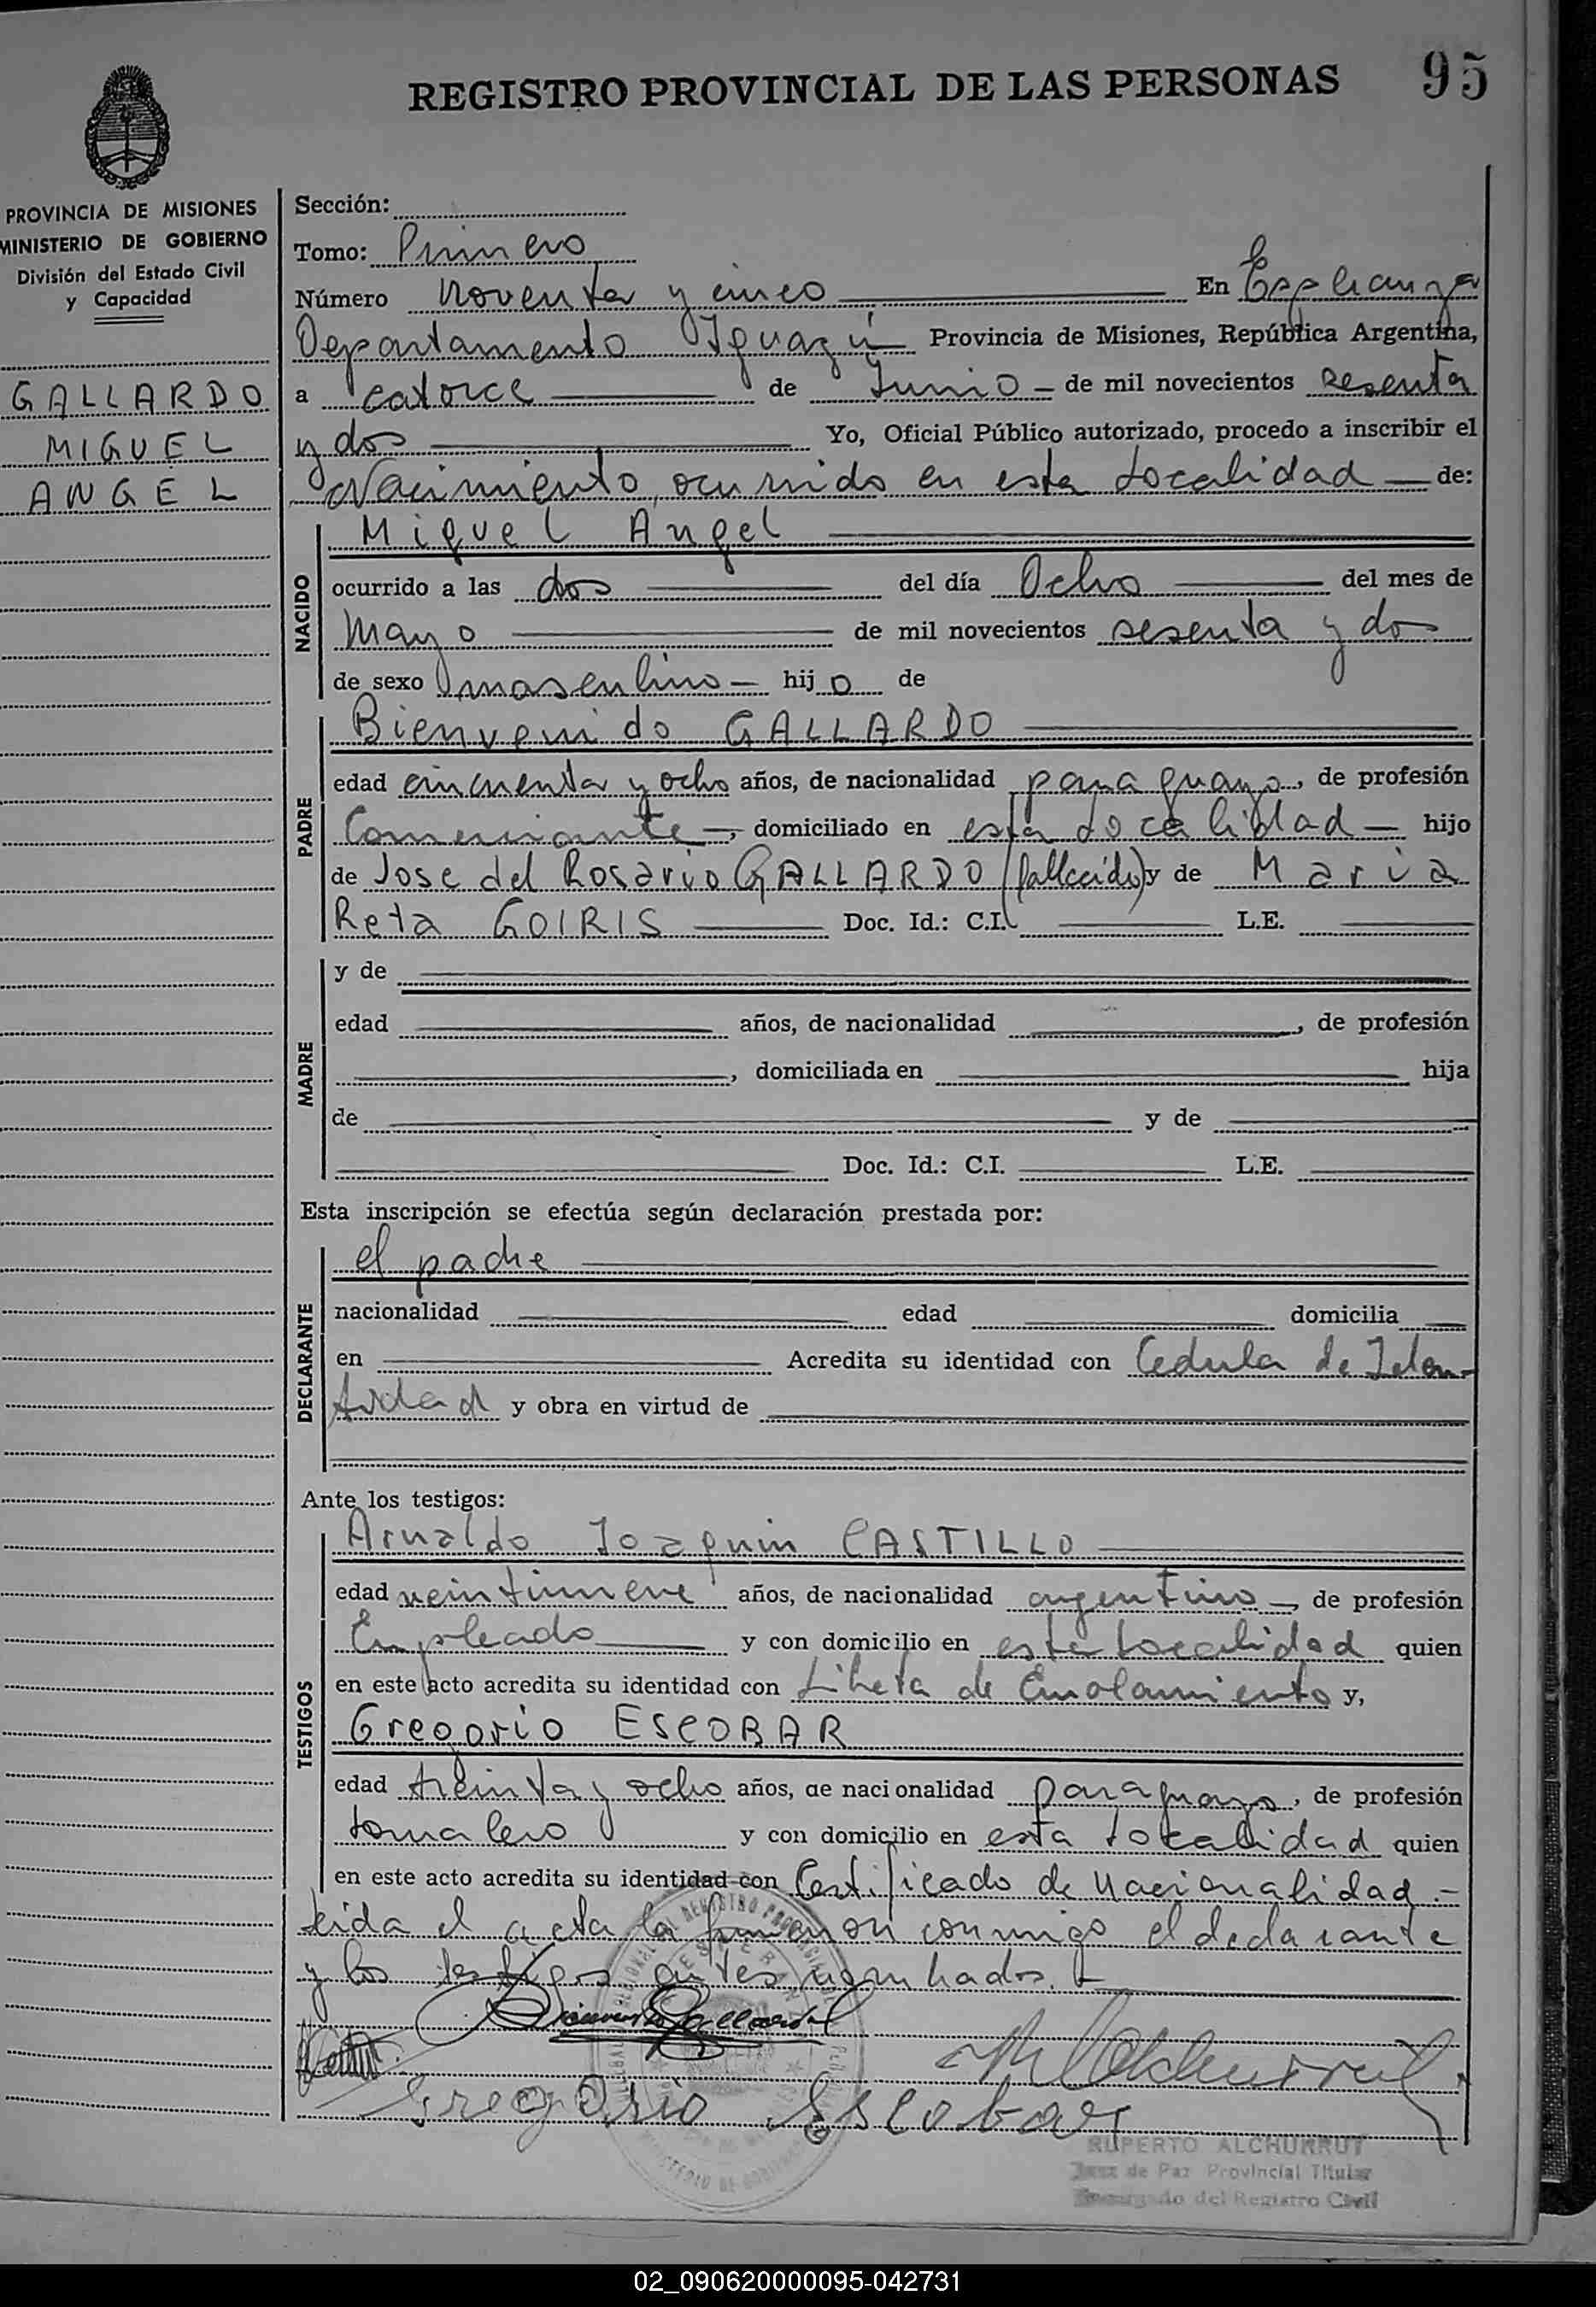 REGISTRO PROVINCIAL DE LAS PERSONAS 95
PROVINCIA DE MISIONES
MINISTERIO DE GOBIERNO
División del Estado Civil
y Capacidad
GALLARDO
MIGUEL
ANGEL
Sección:
Tomo: Primero
Número noventa y cinco En Esperanza
Departamento Iguazú Provincia de Misiones, República Argentina,
a catorce de Junio de mil novecientos sesenta
y dos Yo, Oficial Público autorizado, procedo a inscribir el
Nacimiento, ocurrido en esta localidad de:
NACIDO
Miguel Angel
ocurrido a las dos del día Ocho del mes de
Mayo de mil novecientos sesenta y dos
de sexo masculino hijo de
PADRE
Bienvenido GALLARDO
edad cincuenta y ocho años, de nacionalidad paraguayo, de profesión
Comerciante, domiciliado en esta localidad hijo
de Jose del Rosario GALLARDO (fallecido) y de Maria
Reta GOIRIS Doc. Id.: C.I. L.E.
MADRE
y de
edad años, de nacionalidad , de profesión
, domiciliada en hija
de y de
Doc. Id.: C.I. L.E.
Esta inscripción se efectúa según declaración prestada por:
DECLARANTE
el padre
nacionalidad edad domicilia
en Acredita su identidad con Cedula de Iden-
tidad y obra en virtud de
Ante los testigos:
TESTIGOS
Arnaldo Joaquin CASTILLO
edad veintinueve años, de nacionalidad argentino, de profesión
Empleado y con domicilio en esta localidad quien
en este acto acredita su identidad con Libreta de Enrolamiento y,
Gregorio ESCOBAR
edad treinta y ocho años, de nacionalidad paraguayo, de profesión
Jornalero y con domicilio en esta localidad quien
en este acto acredita su identidad con Certificado de Nacionalidad.-
Leida el acta la firmaron conmigo el declarante
y los testigos antes nombrados.
Bienvenido Gallardo
Gregorio Escobar
RUPERTO ALCHURRUT
Juez de Paz Provincial Titular
Encargado del Registro Civil
02_090620000095-042731